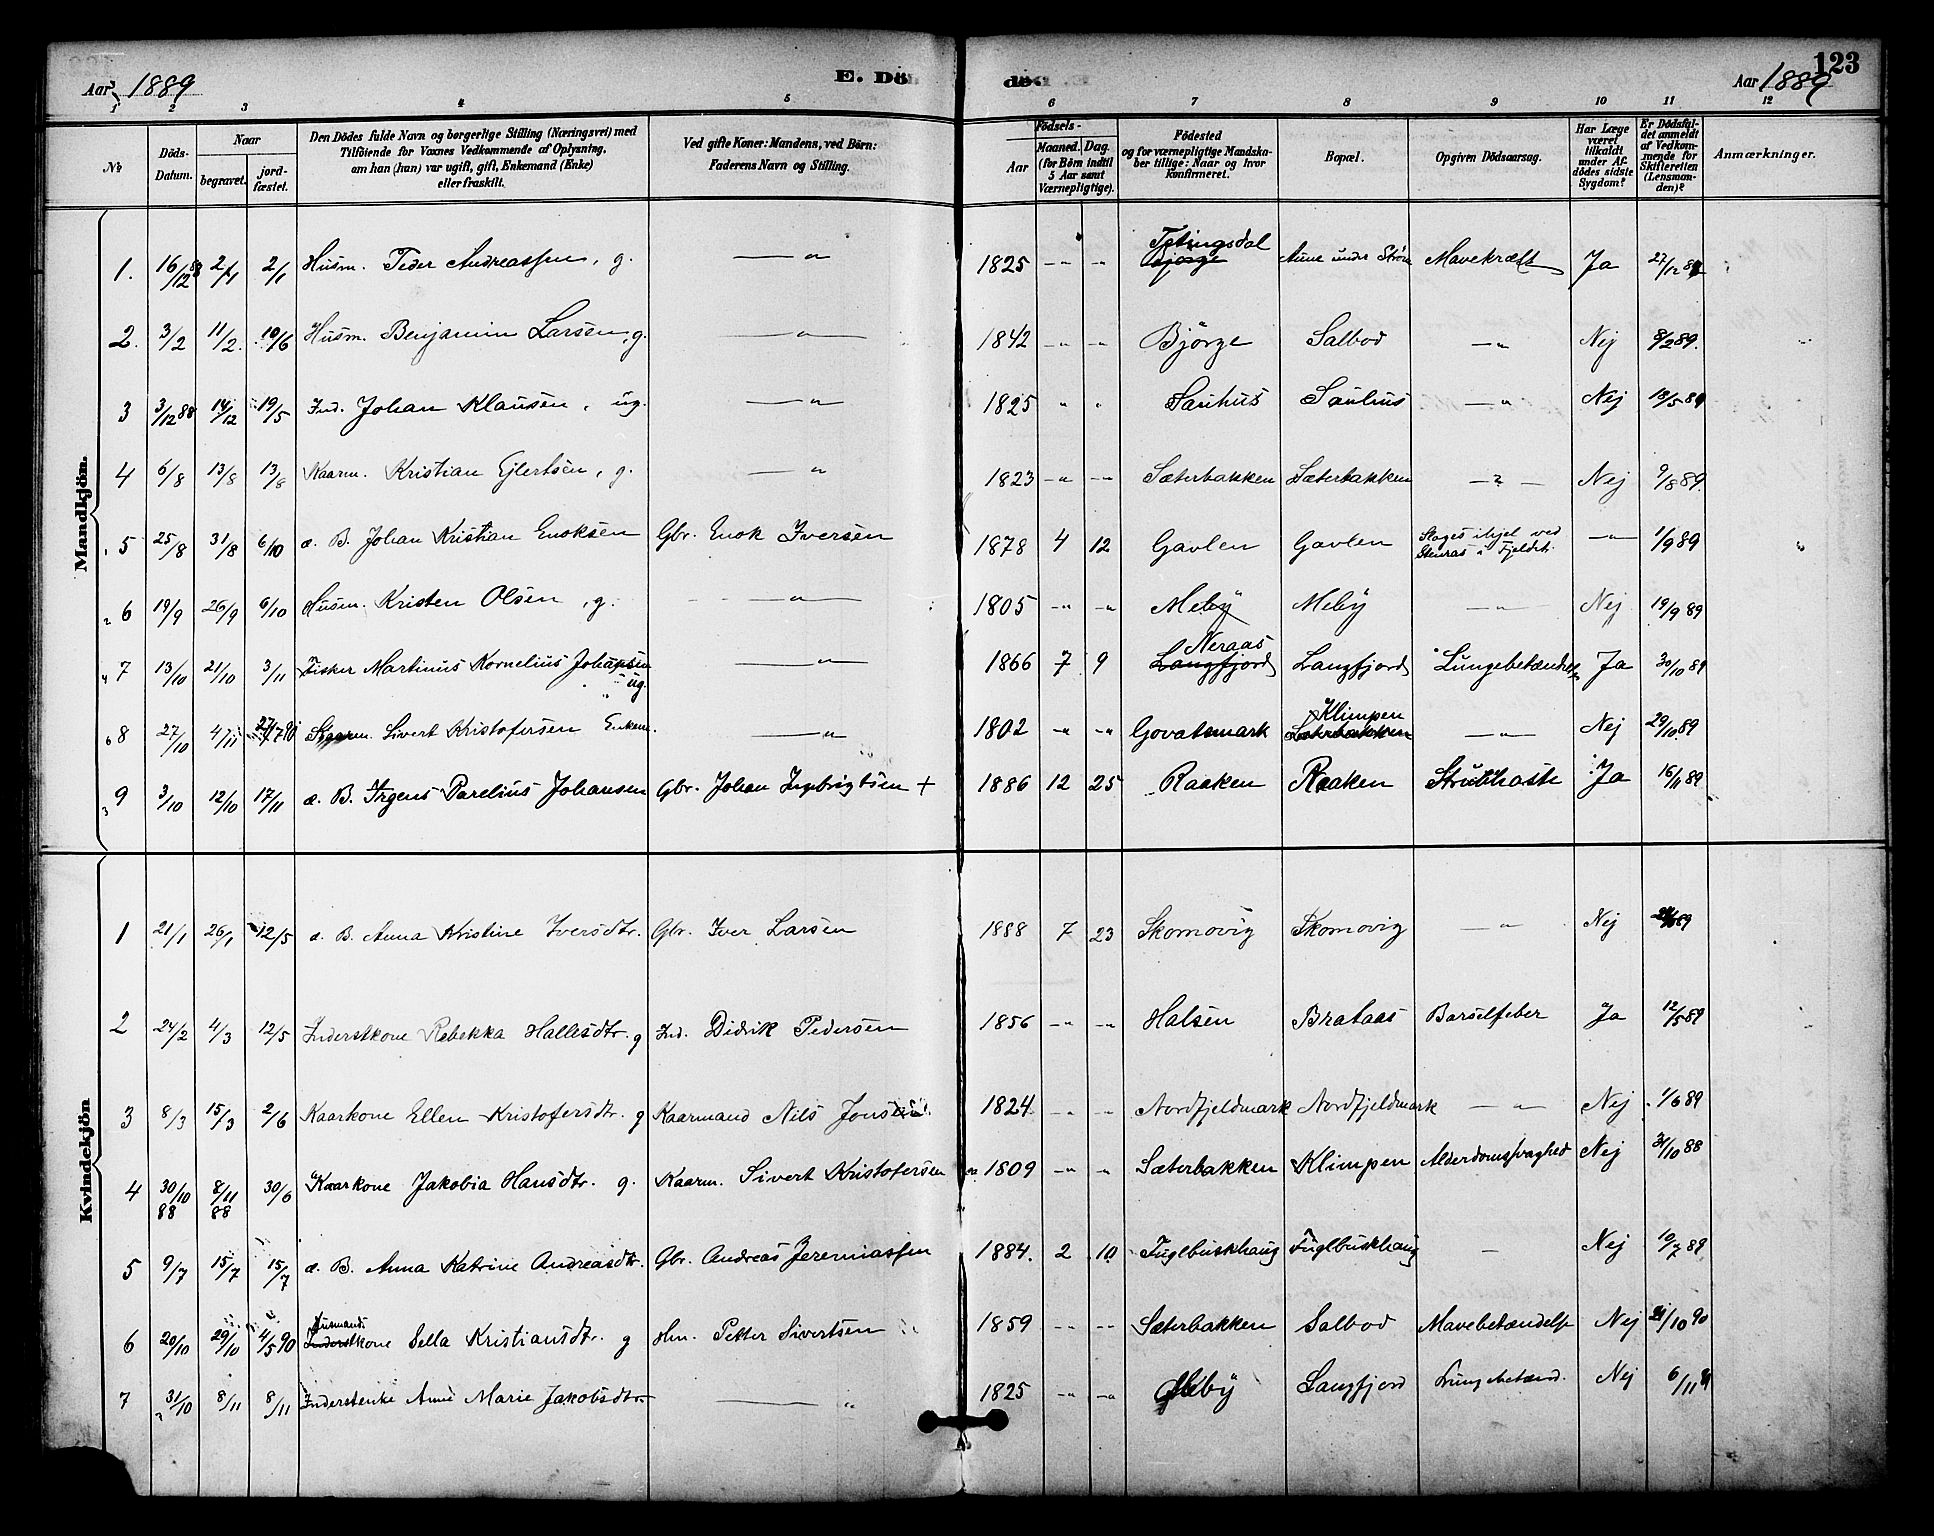 Aar 1889
E. Dö
död
123
Aar 1889
1 2 3 4 5 6 7 8 9 10 11 12
No
Döds-Datum.
Naar
begravet.
jord-fæstet.
Den Dödes fulde Navn og borgerlige Stilling (Næringsvei) med
Tilföiende for Voxnes Vedkommende af Oplysning,
om han (hun) var ugift, gift, Enkemand (Enke)
eller fraskilt.
Ved gifte Koner: Mandens, ved Börn:
Faderens Navn og Stilling.
Födsels-
Aar
Maaned. Dag.
(for Börn indtil
5 Aar samt
Værnepligtige).
Födested
og for værnepligtige Mandska-
ber tillige: Naar og hvor
Konfirmeret.
Bopæl.
Opgiven Dödsaarsag.
Har Læge
været
tilkaldt
under Af-
dödes sidste
Sygdom?
Er Dödsfal-
det anmeldt
af Vedkom-
mende for
Skifteretten
(Lensman-
den)?
Anmærkninger.
Mandkjön.
1. 16/12 88 2/1 2/1 Husm. Peder Andreassen, g. — " — 1825 - " - " Bjørge Aune under Mavekræft Ja 27/12 88
2. 3/2 11/2 10/6 Husm. Benjamin Larsen, g. — " — 1842 - " - " - Björge Salbod - " - Nej 8/2 89.
3 3/12 88 14/12 19/5 Ind. Johan Klausen, ug. — " — 1825 " " Sauhus Sauhus - " - Nej 18/5 89
4 6/8 13/8 13/8 Kaarm. Kristian Ejlertsen, g. — " 1823 - " - - " - Sæterbakken Sæterbakken - " - Nej 9/8 89.
5 25/8 31/8 6/10 æ. B. Johan Kristian Enoksen Gbr. Enok Iversen 1878 4 12 Gavlen Gavlen Slages ihjel ved Stenras i Fjeldet. - " - 1/9 89
6 19/9 26/9 6/10 Husm. Kristen Olsen, g. — " — 1805 - " - - " - Meby Meby - " - Nej 19/9 89
7 13/10 21/10 3/11 Fisker Martinus Kornelius Johansen ug. — " — 1866 7 9 Langfjord Neraas Langfjord Lungebetændelse Ja 30/10 89
8 27/10 4/11 Kaarm. Sivert Kristofersen Enkem. — " 1802 - " - " Govatsmark Sæterbakken Klimpen - " - Nej 29/10 89
9 3/10 12/10 17/11 æ. B. Jrgens Parelius Johansen Gbr. Johan Ingebrigtsen + 1886 12 25 Raaken Raaken Strubhoste Ja 16/11 89
Kvindekjön
1 21/1 26/1 12/5 æ. B. Anna Kristine Iversdtr. Gbr. Iver Larsen 1888 7 23 Skomovig Skomovig - " - Nej
2 24/2 4/3 12/5 Inderstkone Rebekka Hallesdtr. g Ind. Didrik Pedersen 1856 - " - - " - Halsen Brataas Barselfeber Ja 12/5 89
3 8/3 15/3 2/6 Kaarkone Ellen Kristofersdtr. g Kaarmand Nils Jonsen 1824 - " - - " - Nordfjeldmark Nordfjeldmark - " - Nej 1/6 89
4 30/10 88 8/11 88 30/6 Kaarkone Jakobia Hansdtr. g. Kaarm. Sivert Kristofersen 1809 - " - " Sæterbakken Klimpen Alderdomssvaghed Nej 31/10 88
5 9/7 15/7 15/7 æ. B. Anna Katrine Andreasdtr. Gbr. Andreas Jeremiassen 1884. 2 10 Fuglbuskhaug Fuglbuskhaug - Nej 10/7 89
6 20/10 29/10 4/5 90 Inderstkone Husmands Sella Kristiansdtr. g Hm. Petter Sivertsen 1859 - - - - Sæterbakken Salbod Mavebetændelse Nej 21/10 90
7 31/10 8/11 8/11 Inderstenke Anne Marie Jakobsdtr — " 1825 - " - " - Meby Langfjord Lungebetænd. Nej 6/11